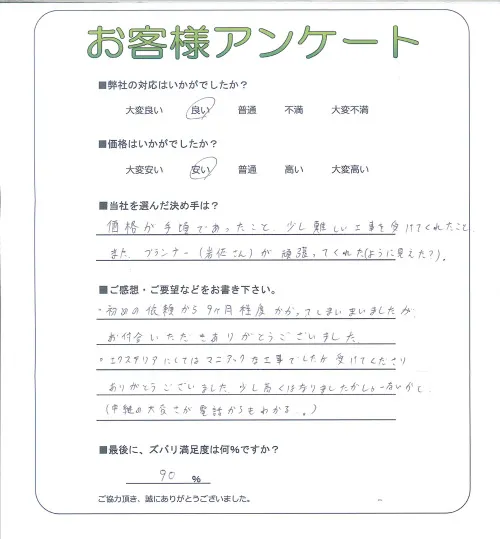 お客様アンケート
■弊社の対応はいかがでしたか？
大変良い 良い 普通 不満 大変不満
■価格はいかがでしたか？
大変安い 安い 普通 高い 大変高い
■当社を選んだ決め手は？
価格が手頃であったこと、少し難しい工事を受けてくれたこと、
また、プランナー(岩佐さん)が頑張ってくれた(ように見えた?)。
■ご感想・ご要望などをお書き下さい。
・初めの依頼から9ヶ月程度かかってしまいましたが
お付合いただきありがとうございました。
・エクステリアにしてはマニアックな工事でしたが受けてくださり
ありがとうございました。少し高くはなりましたが
の大変さが電話からもわかる...)
■最後に、ズバリ満足度は何％ですか？
90 ％
ご協力頂き、誠にありがとうございました。